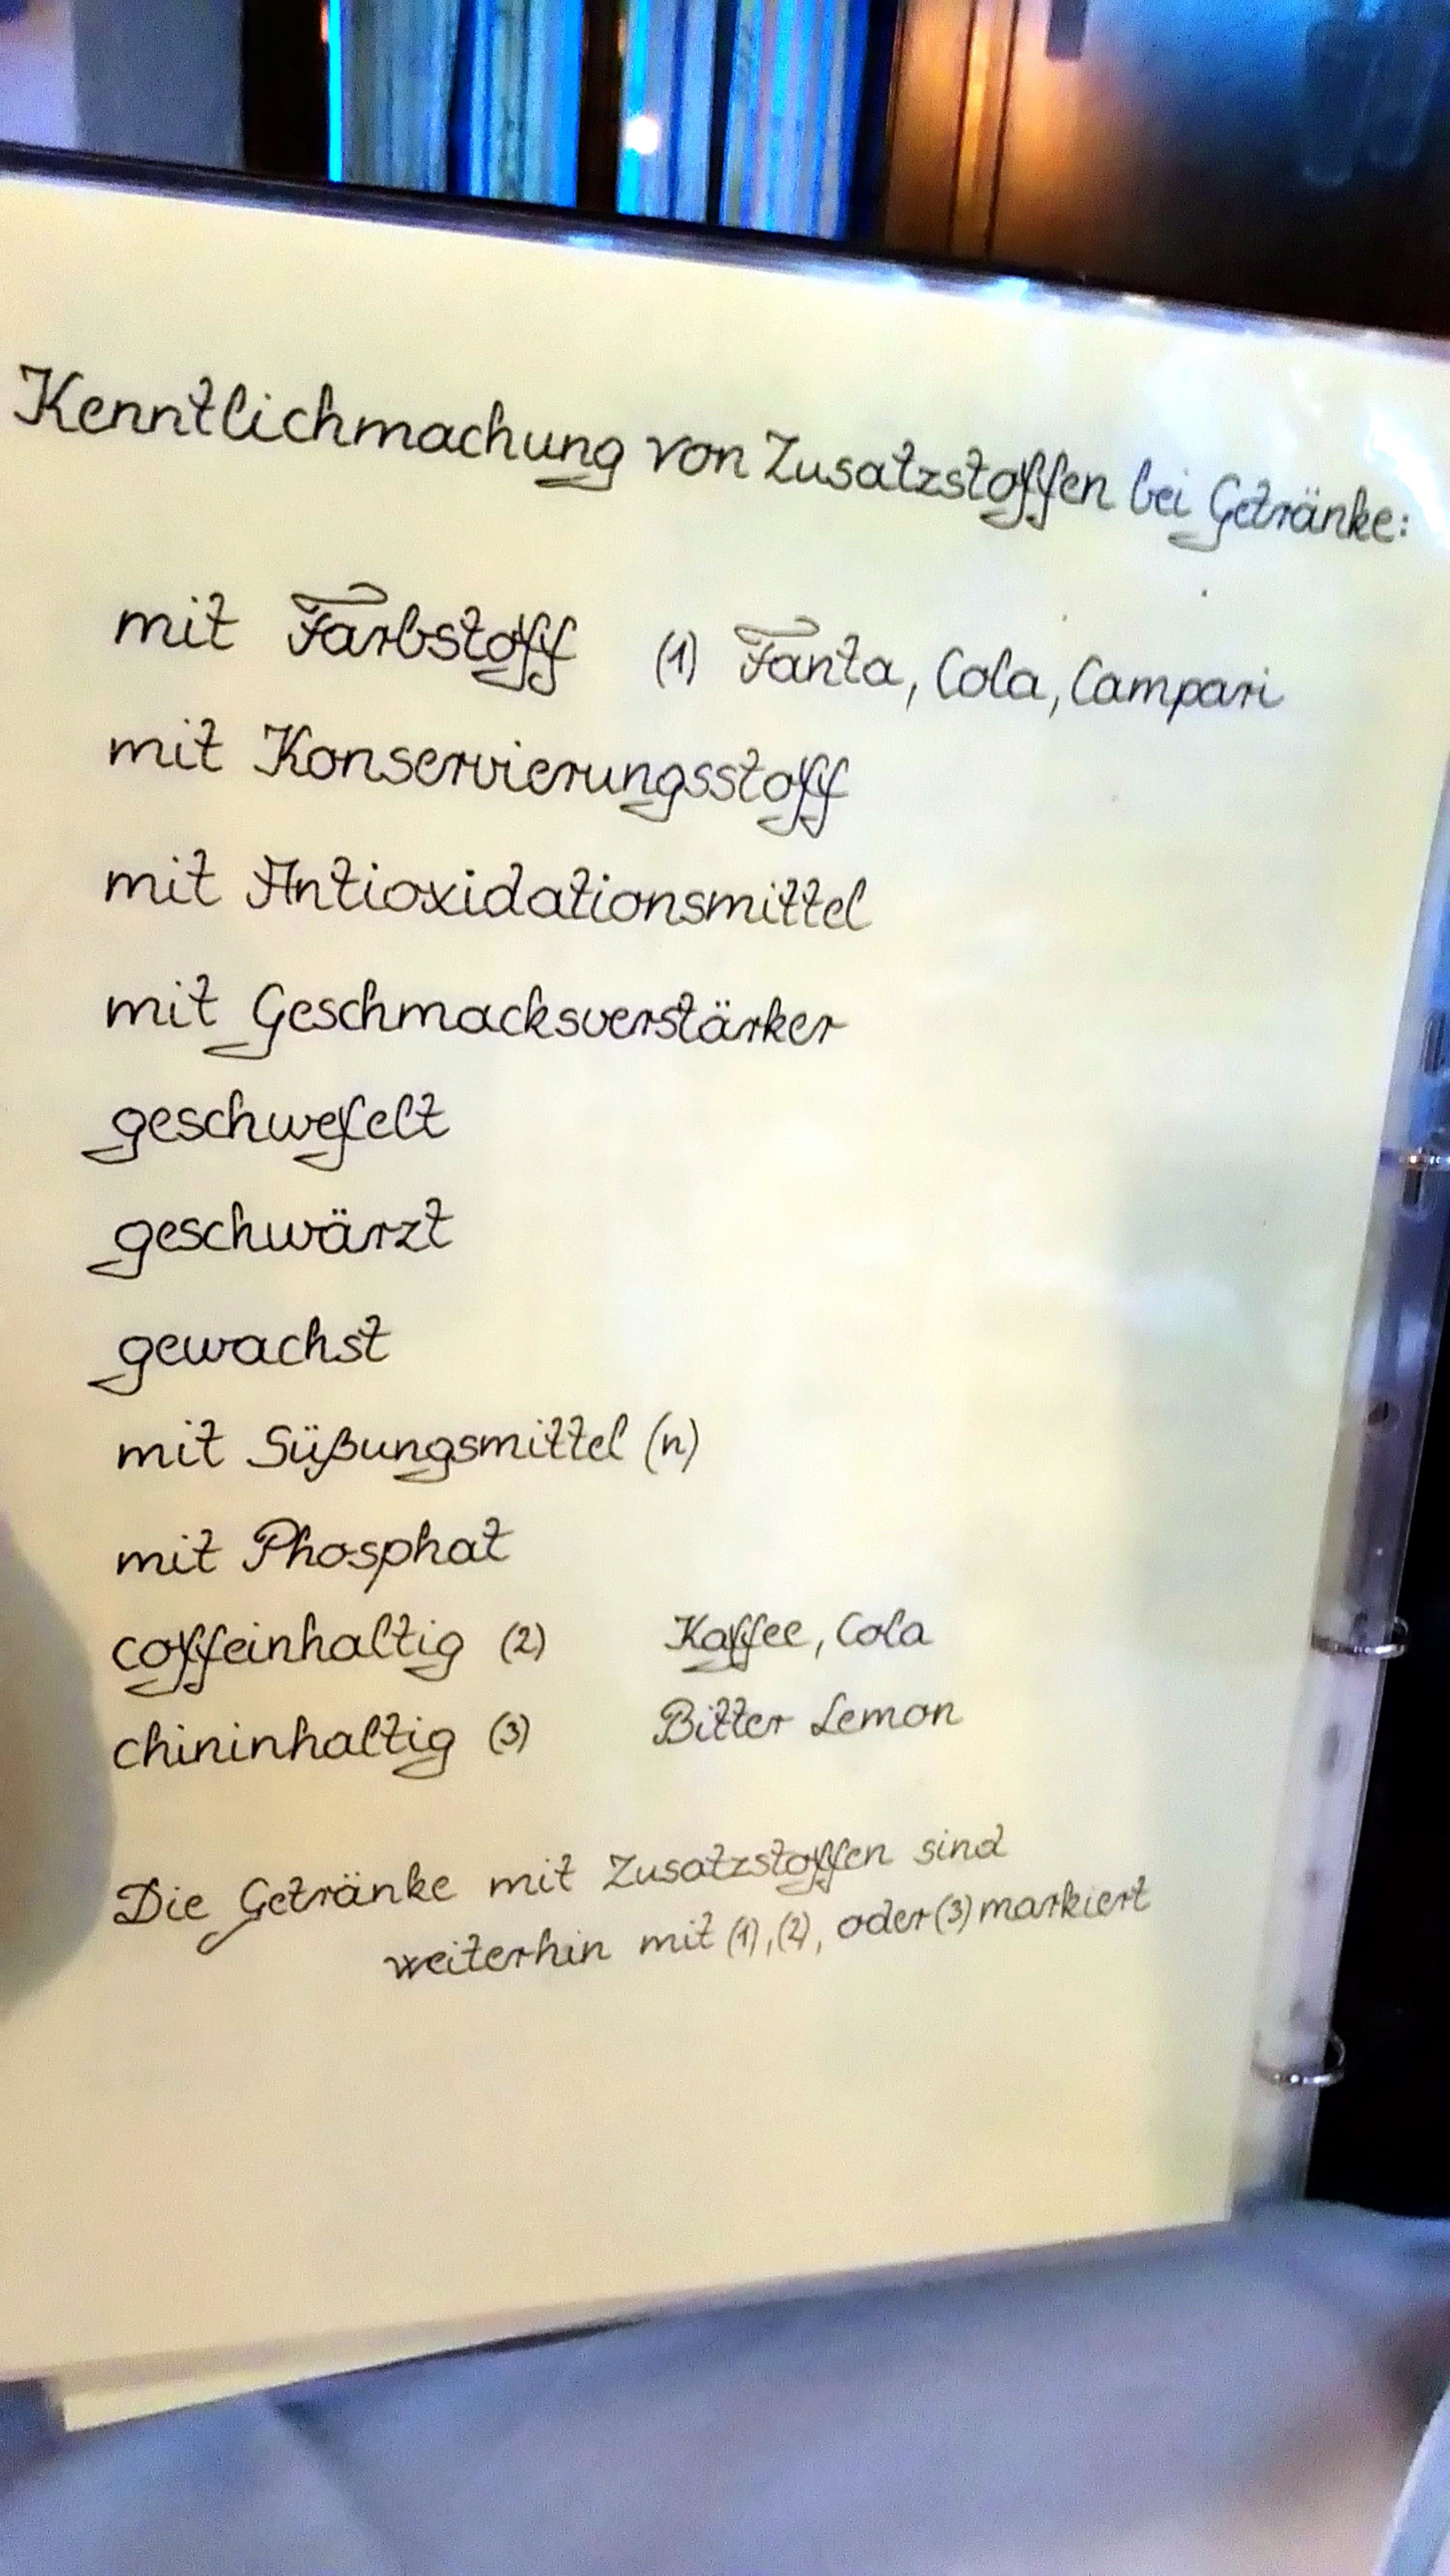 Kenntlichmachung von Zusatzstoffen bei Getränke:
mit Farbstoff (1) Fanta, Cola, Campari
mit Konservierungsstoff
mit Antioxidationsmittel
mit Geschmacksverstärker
geschwefelt
geschwärzt
gewachst
mit Süßungsmittel (n)
mit Phosphat
coffeinhaltig (2) Kaffee, Cola
chininhaltig (3) Bitter Lemon
Die Getränke mit Zusatzstoffen sind
weiterhin mit (1), (2), oder (3) markiert